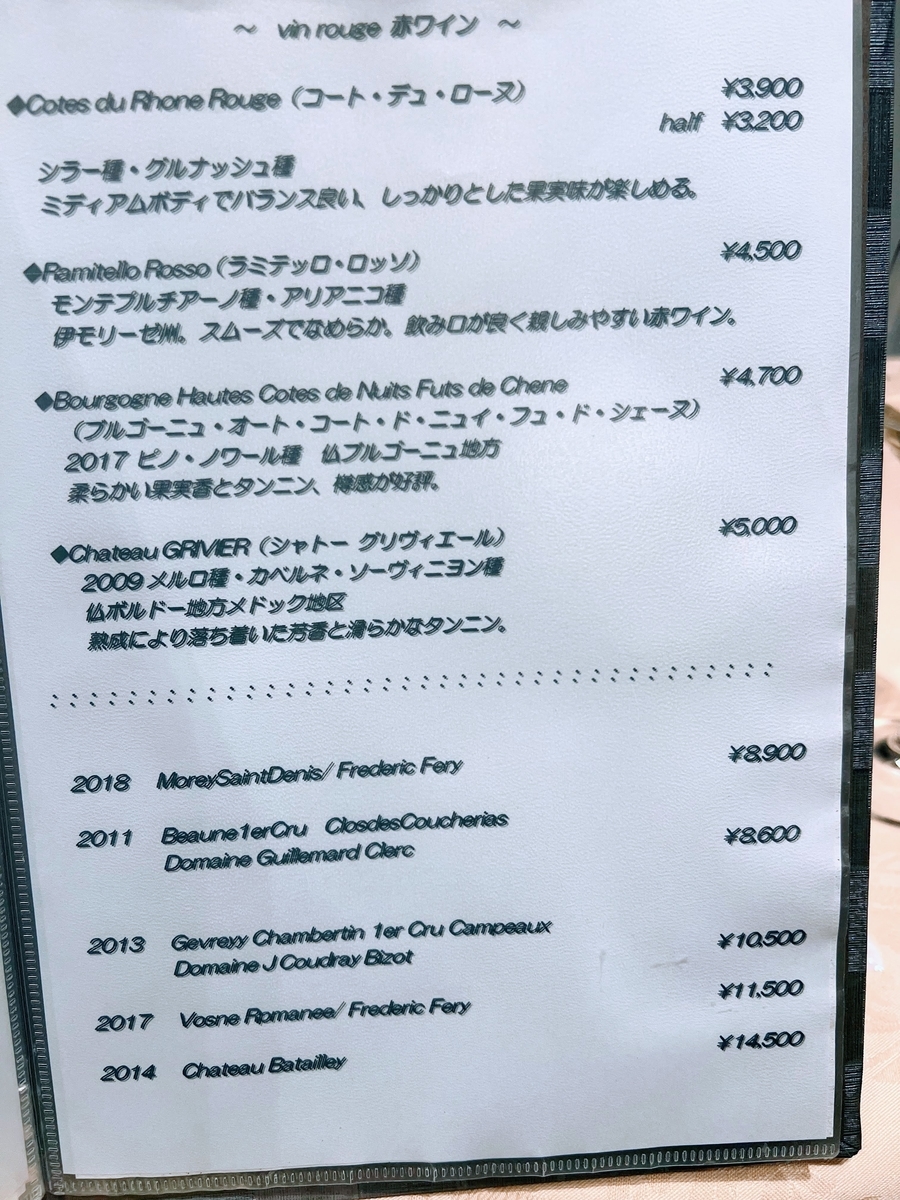 ～ vin rouge 赤ワイン ～
◆Cotes du Rhone Rouge（コート・デュ・ローヌ） ¥3,900
half ¥3,200
シラー種・グルナッシュ種
ミディアムボディでバランス良い、しっかりとした果実味が楽しめる。
◆Ramitello Rosso（ラミテッロ・ロッソ） ¥4,500
モンテプルチアーノ種・アリアニコ種
伊モリーゼ州。スムーズでなめらか。飲み口が良く親しみやすい赤ワイン。
◆Bourgogne Hautes Cotes de Nuits Futs de Chene ¥4,700
（ブルゴーニュ・オート・コート・ド・ニュイ・フュ・ド・シェーヌ）
2017 ピノ・ノワール種 仏ブルゴーニュ地方
柔らかい果実香とタンニン、樽感が好評。
◆Chateau GRIVIER（シャトー グリヴィエール） ¥5,000
2009 メルロ種・カベルネ・ソーヴィニヨン種
仏ボルドー地方メドック地区
熟成により落ち着いた芳香と滑らかなタンニン。
2018 MoreySaintDenis/ Frederic Fery ¥8,900
2011 Beaune1erCru ClosdesCoucherias ¥8,600
Domaine Guillemard Clerc
2013 Gevreyy Chambertin 1er Cru Campeaux ¥10,500
Domaine J Coudray Bizot
2017 Vosne Romanee/ Frederic Fery ¥11,500
2014 Chateau Batailley ¥14,500